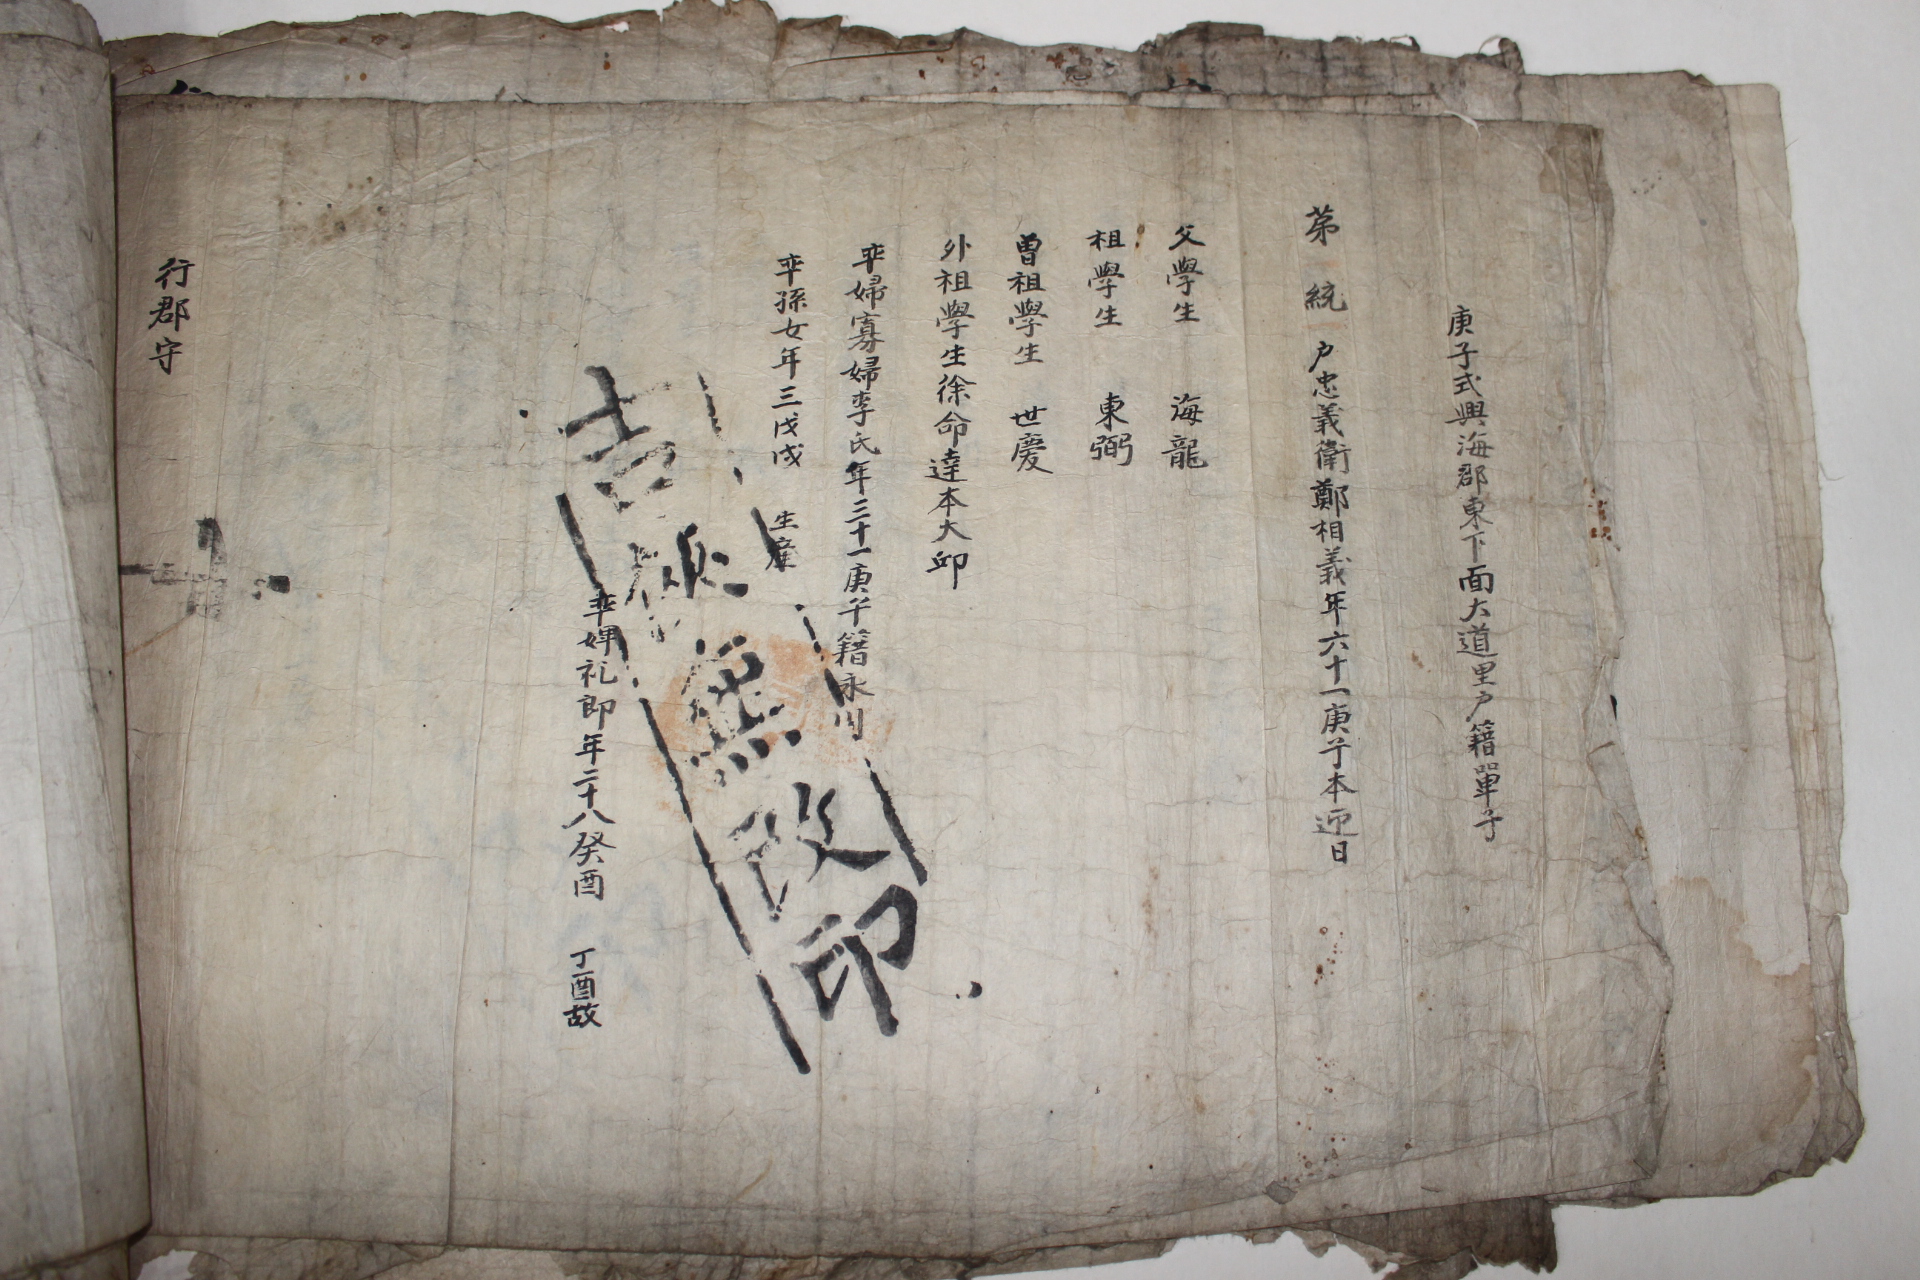 庚子式興海郡東下面大道里户籍單子
第一統一户忠義衛鄭相義年六十一庚子本迎日
父學生 海龍
祖學生 東弼
曽祖學生 世慶
外祖學生徐命達本大邱
率婦寡婦李氏年三十一庚午籍永川
率孫女年三戊戌 生産
無改印
率婢礼郎年二十八癸酉 丁酉故
行郡守